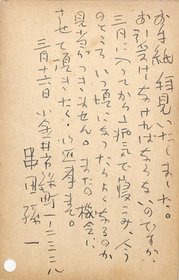 お手紙拝見いたしました。
お引受けしなければならないのですが
三月に入つてから病気で寝こみ、今
のところいつ頃になつたらよくなるのか
見当がつきません。またの機会に
させて頂きたく
三月十六日 小金井市緑町一ノ三ノ八
串田孫一